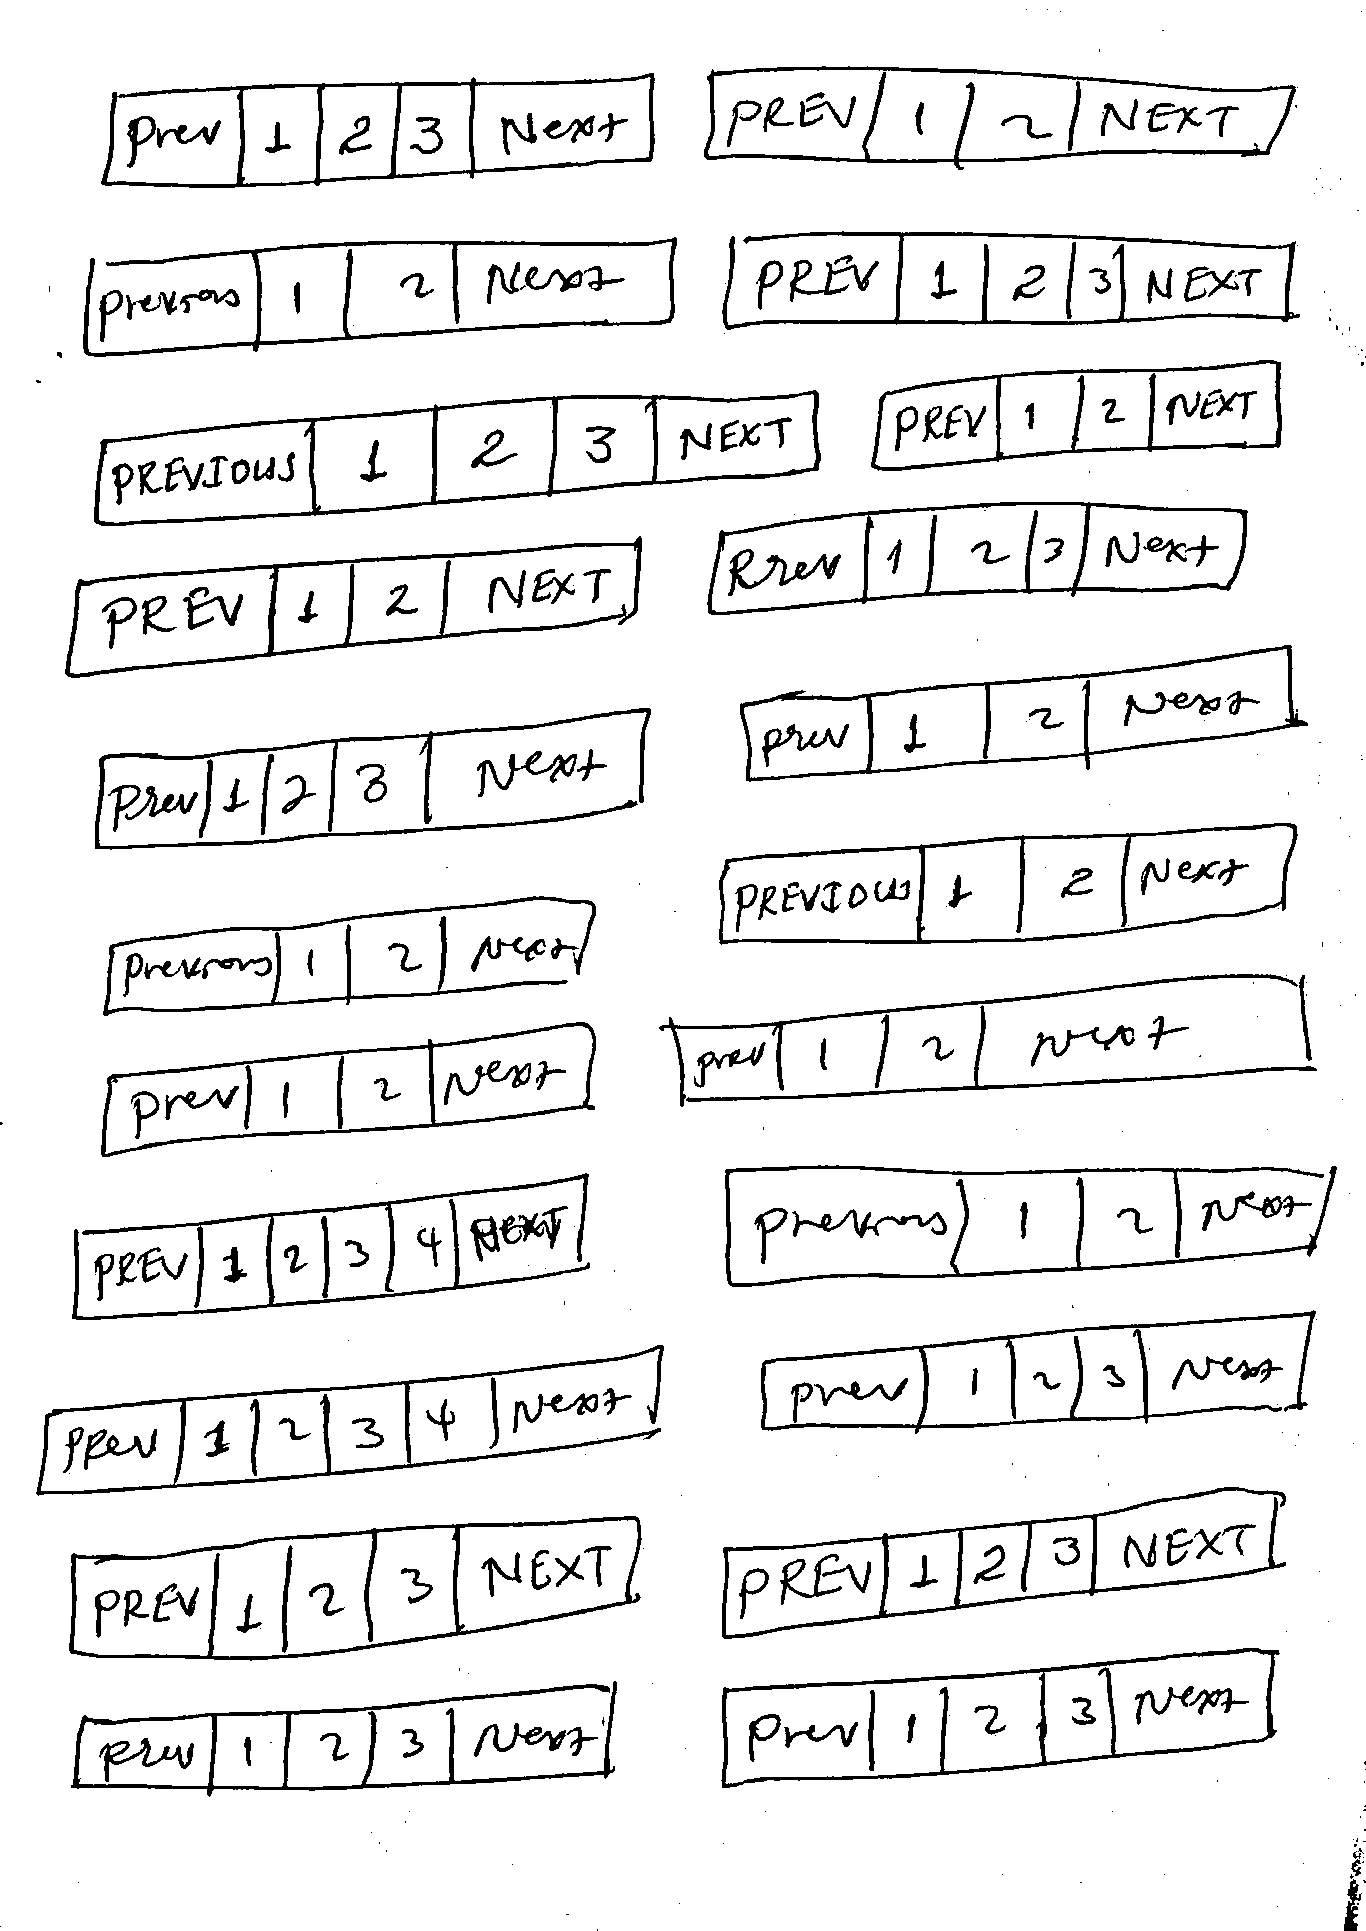 Prev 1 2 3 Next
PREV 1 2 NEXT
Previous 1 2 Next
PREV 1 2 3 NEXT
PREVIOUS 1 2 3 NEXT
PREV 1 2 NEXT
PREV 1 2 NEXT
Rrev 1 2 3 Next
Prev 1 2 3 Next
prev 1 2 Next
PREVIOUS 1 2 Next
Previous 1 2 Next
prev 1 2 Next
Prev 1 2 Next
PREV 1 2 3 4 NEXT
Previous 1 2 Next
PRev 1 2 3 4 Next
prev 1 2 3 Next
PREV 1 2 3 NEXT
PREV 1 2 3 NEXT
prev 1 2 3 Next
Prev 1 2 3 Next